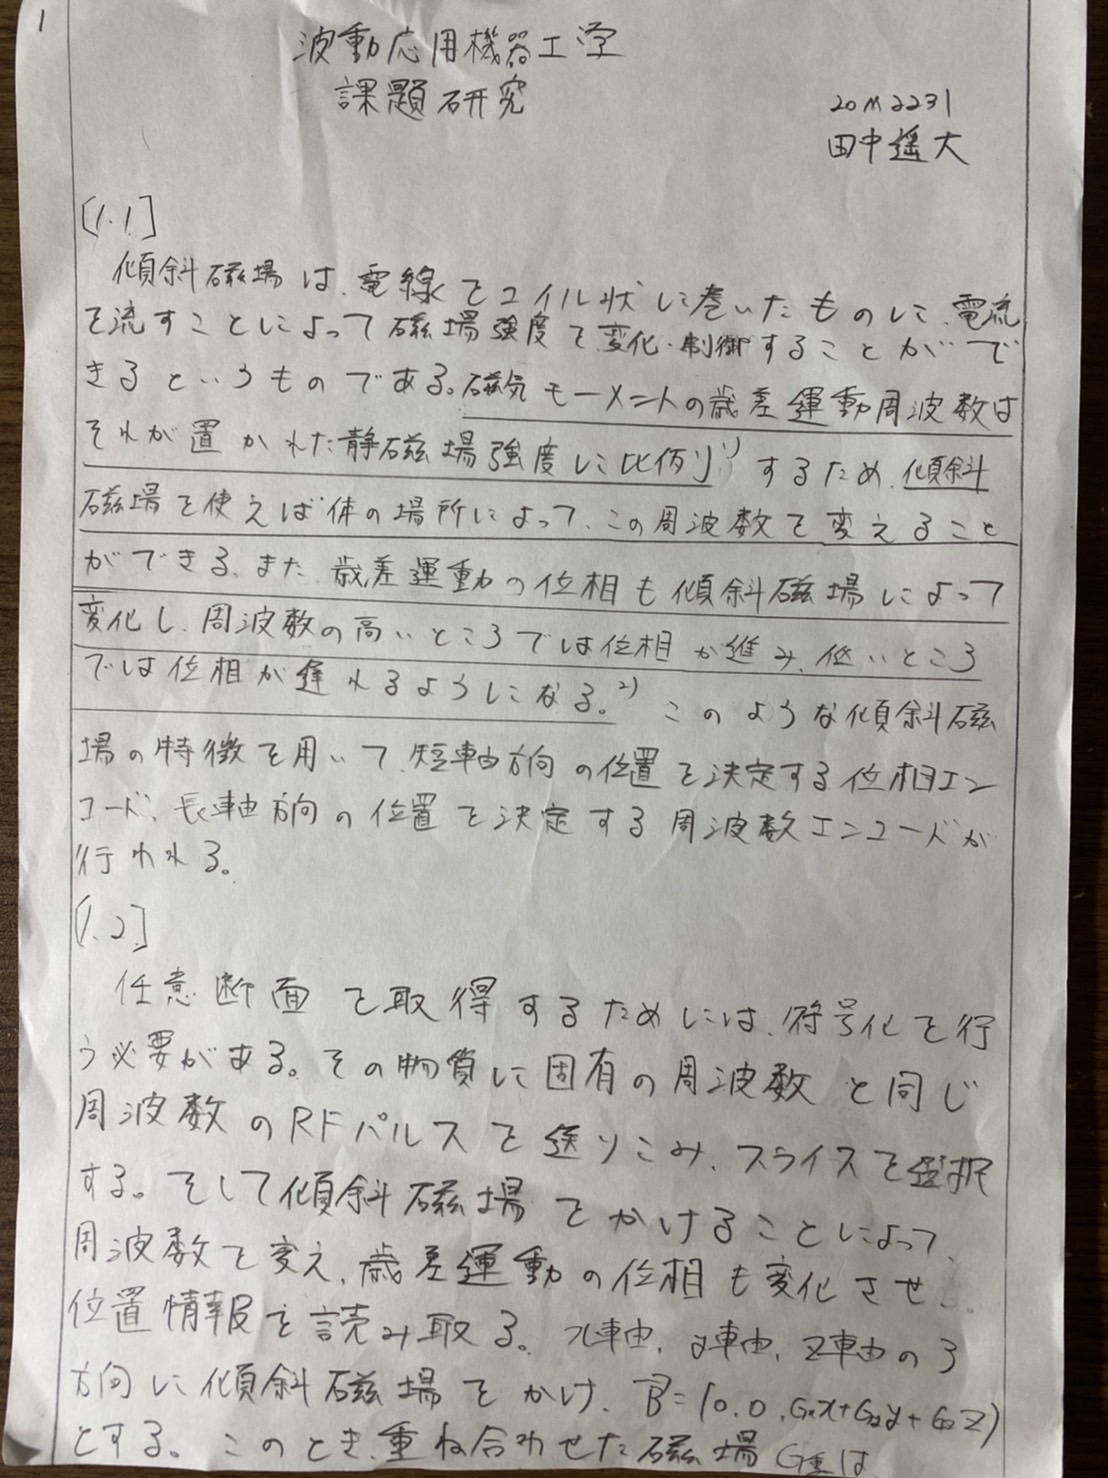 1
波動応用機器工学
課題研究
20M2231
田中遥大
[1.1]
傾斜磁場は、電線をコイル状に巻いたものに、電流
を流すことによって磁場強度を変化・制御することがで
きるというものである。磁気モーメントの歳差運動周波数は
それが置かれた静磁場強度に比例1)するため、傾斜
磁場を使えば体の場所によって、この周波数を変えること
ができる、また、歳差運動の位相も傾斜磁場によって
変化し、周波数の高いところでは位相が進み、低いところ
では位相が遅れるようになる。2) このような傾斜磁
場の特徴を用いて、短軸方向の位置を決定する位相エン
コード、長軸方向の位置を決定する周波数エンコードが
行われる。
[1.2]
任意断面を取得するためには、符号化を行
う必要がある。その物質に固有の周波数と同じ
周波数のRFパルスを送りこみ、スライスを選択
する。そして傾斜磁場をかけることによって、
周波数を変え、歳差運動の位相も変化させ、
位置情報を読み取る。x軸、y軸、z軸の3
方向に傾斜磁場をかけ、B=(0,0,Gxx+Gyy+Gzz)
とする。このとき、重ね合わせた磁場 は